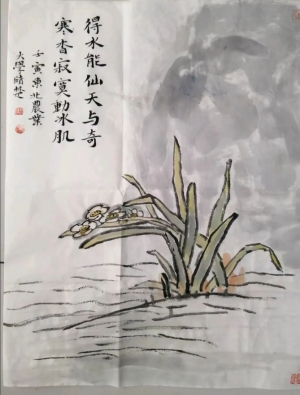 得水能仙天与奇
寒香寂寞動冰肌
壬寅東北農業
大學